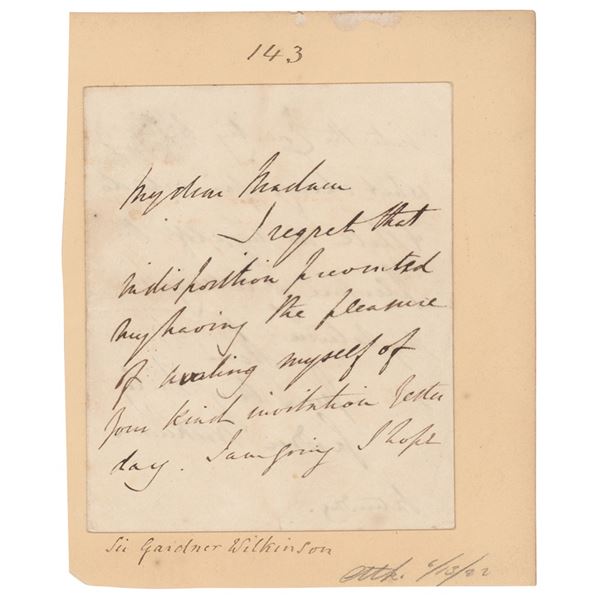 143
My dear Madam
I regret that
indisposition prevented
my having the pleasure
of availing myself of
your kind invitation Yester
day. I am going I hope
Sir Gardner Wilkinson
6/13/22